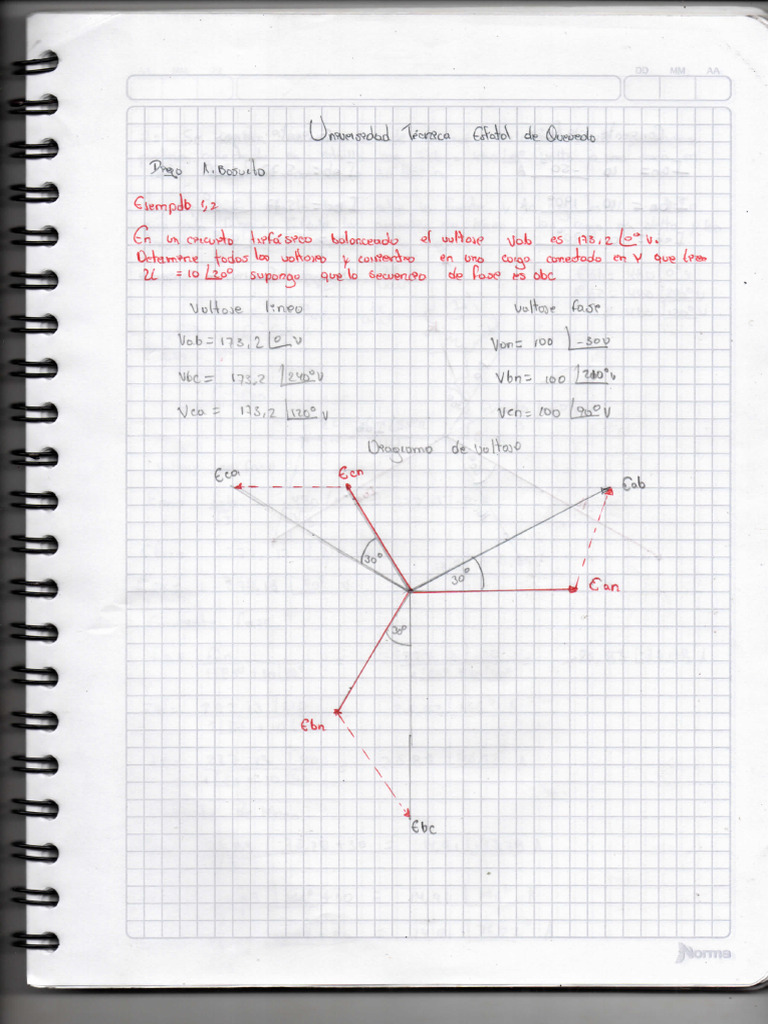 AA MM DD
Universidad Técnica Estatal de Quevedo
Diego A. Basurto
Ejemplo 1,2
En un circuito trifásico balanceado el voltaje Vab es 173,2 ∠0° v.
Determine todos los voltajes y corrientes en una carga conectada en Y que tiene
ZL = 10 ∠20° suponga que la secuencia de fase es abc
Voltaje linea voltaje fase
Vab = 173,2 ∠0 v Van = 100 ∠-30v
Vbc = 173,2 ∠240° v Vbn = 100 ∠210° v
Vca = 173,2 ∠120° v Vcn = 100 ∠90° v
Diagrama de voltaje
Eca Ecn Eab
30° 30°
Ean
30°
Ebn
Ebc
Norma